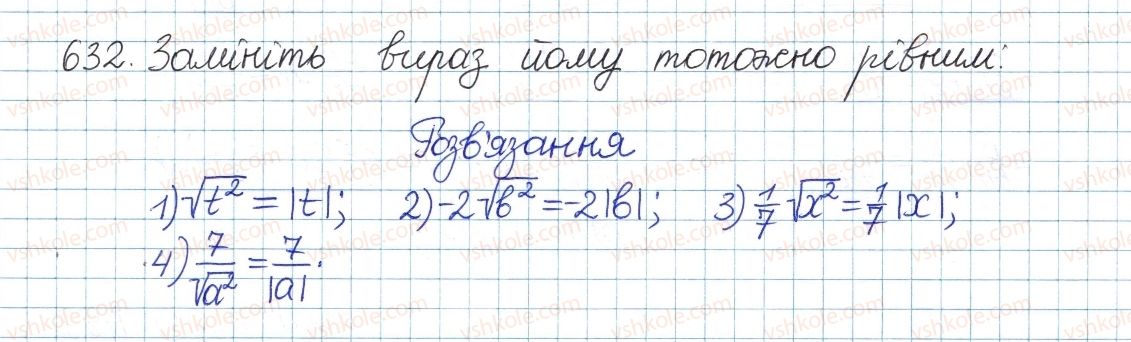 632. Замініть вираз йому тотожно рівним:
Розв'язання
1) √t² = |t|; 2) -2√b² = -2|b|; 3) 1/7 √x² = 1/7 |x|;
4) 7/√a² = 7/|a|.